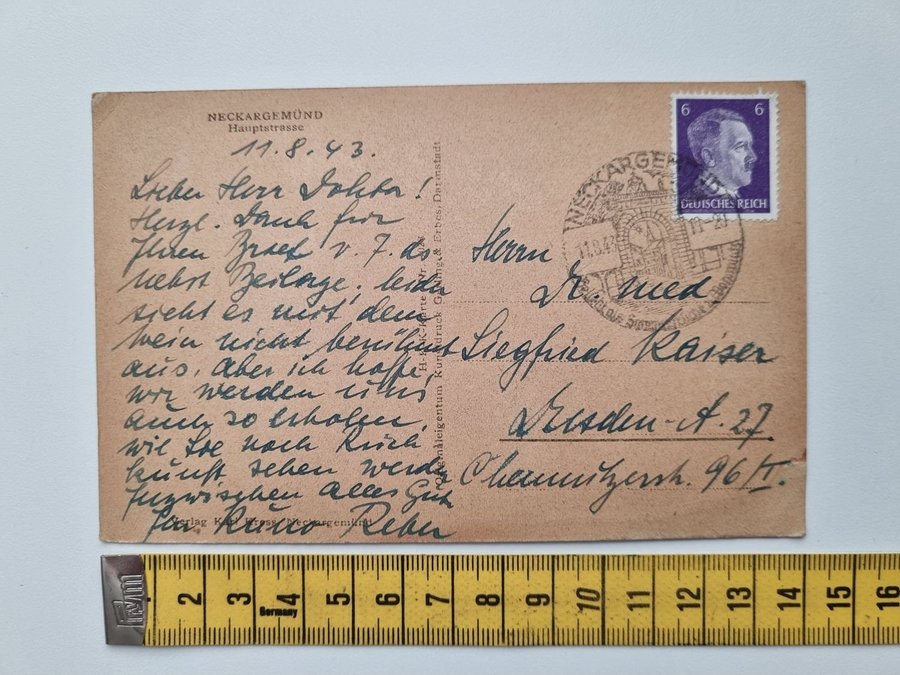 NECKARGEMÜND
Hauptstrasse
11.8.43.
Lieber Herr Doktor!
Herzl. Dank für
Ihren Brief v. 7. ds
nebst Beilage, leider
sieht es mit dem
Wein nicht berühmt
aus, aber ich hoffe,
wir werden uns
auch so erholen,
wie Sie nach Rück
kunft sehen werden
Inzwischen alles Gute
Ihr Kuno Reber
Verlag Karl Kress, Neckargemünd
H-K-K-Karte Nr.
Originaleigentum Kupferdruck & Erbes, Darmstadt
6 6
DEUTSCHES REICH
NECKARGEMÜND
11.8.43
Herrn
Dr. med
Siegfried Kaiser
Dresden-A. 27
Chemnitzerstr. 96/I.
1 2 3 4 5 6 7 8 9 10 11 12 13 14 15 16
Germany